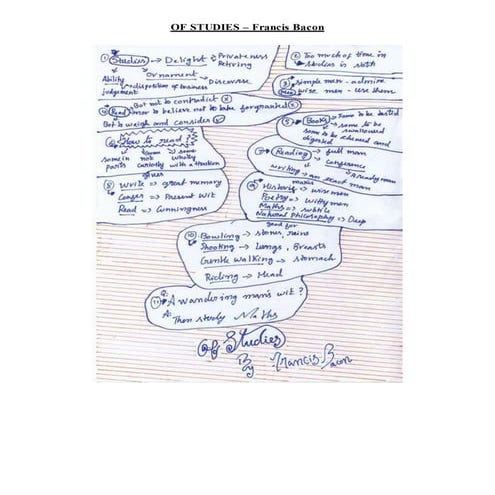 OF STUDIES – Francis Bacon
① Studies → Delight → Privateness
Retiring
Ability Ornament → Discourse
judgement → disposition of business
② Too much of time in
studies is sloth
③ Simple men - admire
wise men - use them
④ Read → Not to contradict
nor to believe not to take for granted
But to weigh and consider
⑤ Books → Some to be tasted
some to be swallowed
some to be chewed and
digested
⑥ How to read?
some in parts
not
wholly
with attention
⑦ Reading → full man
→ conference
→ ready man
writing → an exact man
⑧ Write → great memory
Confess → Present wit
Read → Cunningness
makes
⑨ Histories → wise men
Poetry → witty men
Maths → subtle
Natural philosophy → Deep
good for
⑩ Bowling → stones reins
Shooting → lungs, Breasts
Gentle walking → stomach
Riding → Head
⑪ Q. A wandering man's wit?
A: Then study Maths
Of Studies
By Francis Bacon